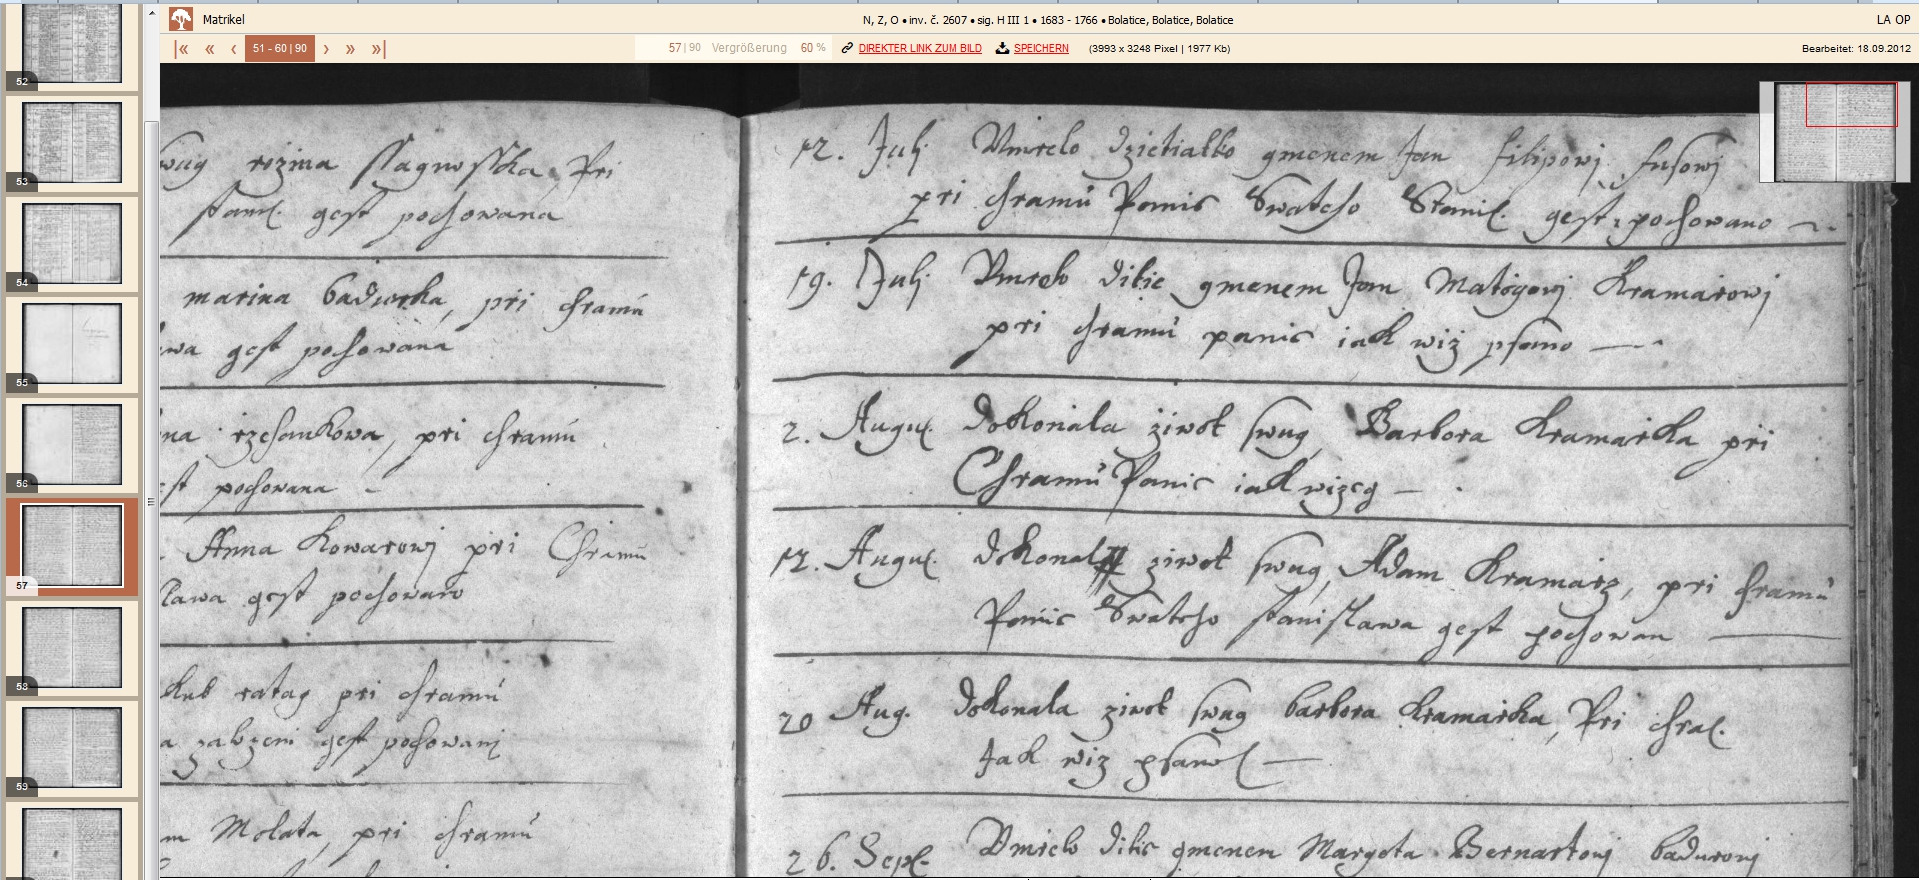 Matrikel
N, Z, O • inv. č. 2607 • sig. H III 1 • 1683 - 1766 • Bolatice, Bolatice, Bolatice
LA OP
51 - 60 | 90
57 | 90 Vergrößerung 60 %
DIREKTER LINK ZUM BILD
SPEICHERN
(3993 x 3248 Pixel | 1977 Kb)
Bearbeitet: 18.09.2012
52
53
54
55
56
57
58
59
swug rizina Pri
stanil. gest pochowana
marina badurka, pri chramu
gest pochowana
pri chramu
pochowana
Anna Kowarowj pri Chramu
gest pochowano
ratag pri chramú
gest pochowanj
Molata, pri chramú
12. Julj Vmrelo dzietiatko gmenem Jan Filipowj fusowj
pri chramú Panie Swateho Stanil. gest pochowano
19. Julj Vmrelo ditie gmenem Jan Matógowj Kramarowj
pri chramú panie iak wiz psano
2. Augus. dokonala ziwot swug Barbora Kramarka pri
Chramú Panie iak wizeg
12. Augus. dokonal ziwot swug, Adam Kramarz, pri chramú
Panie Swateho stanislawa gest pochowan
20 Aug. dokonala ziwot swug barbora kramarka, Pri chra.
Jak wiz psano
26. Sept. Vmrelo ditie gmenem Margeta Bernartowj badurowj